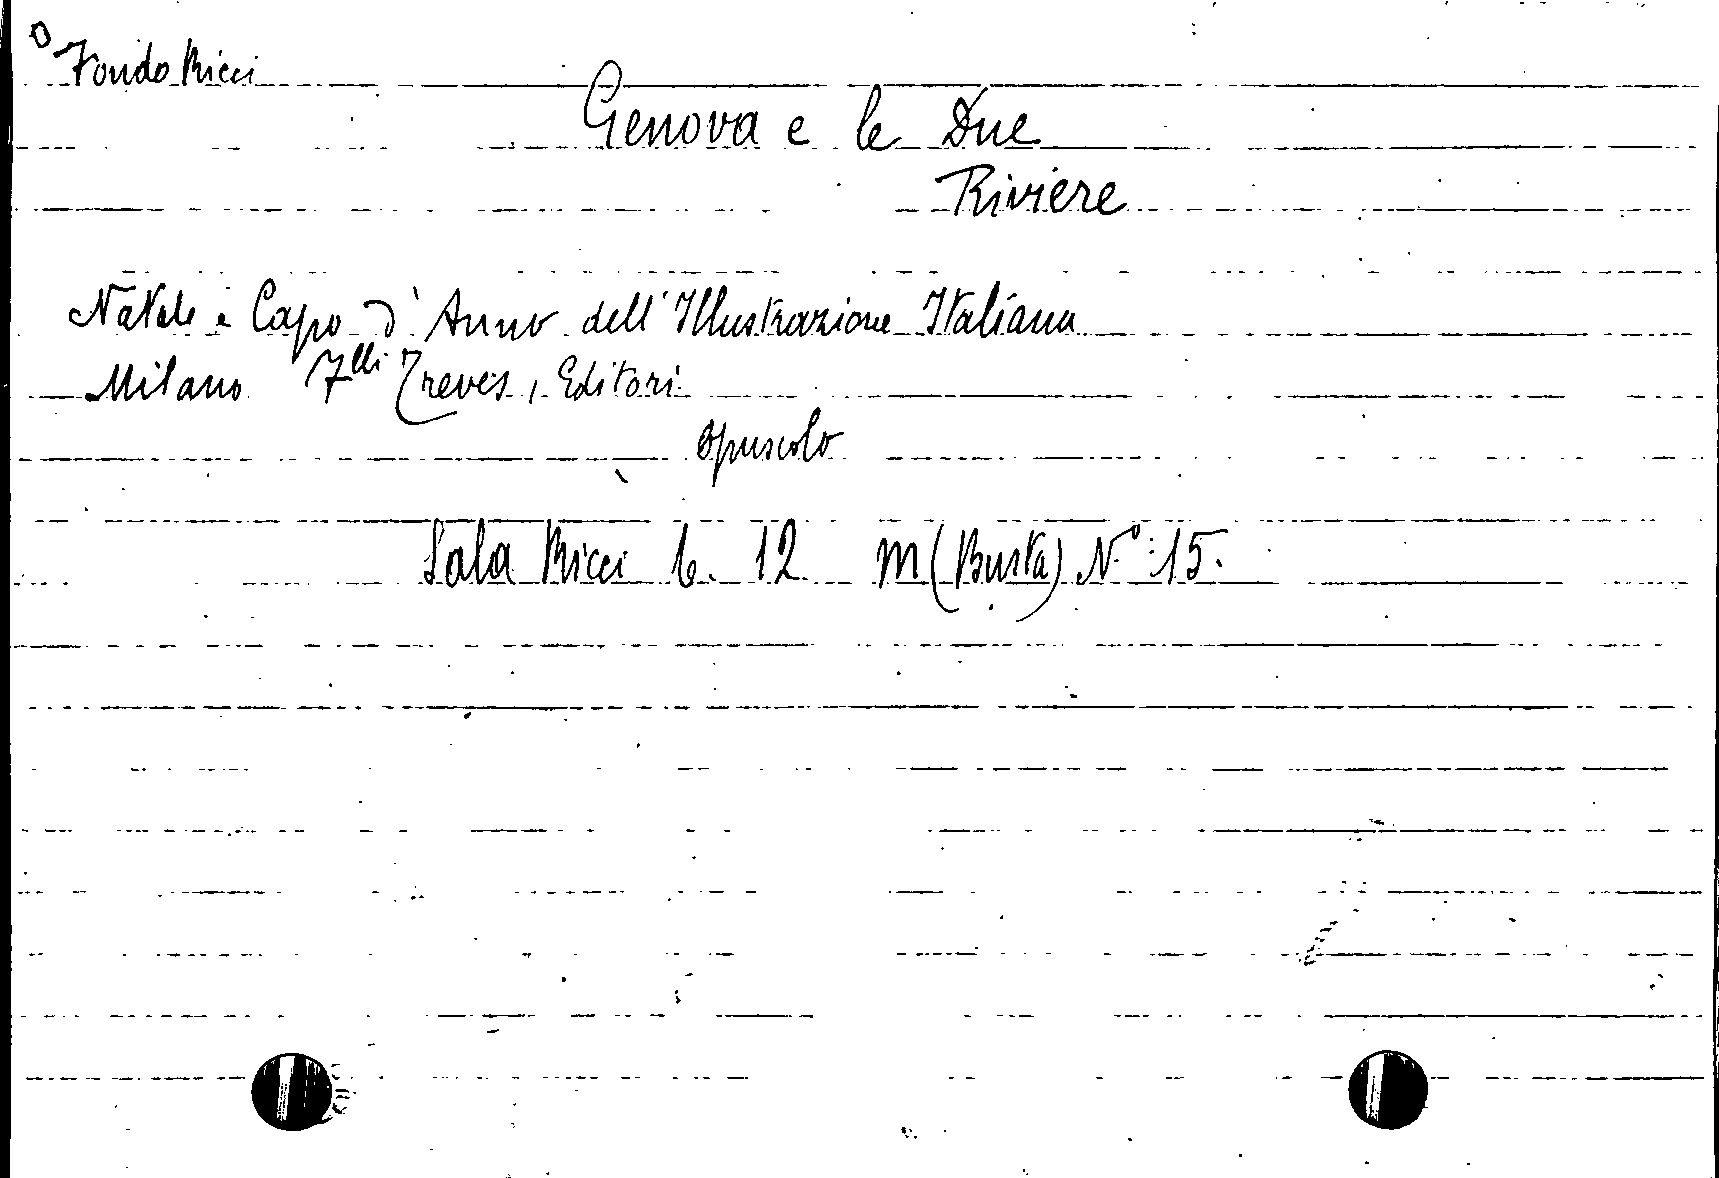 Fondo Ricci
Genova e le Due
Riviere
Natale e Capo d'Anno dell'Illustrazione Italiana
Milano Flli Treves, Editori
opuscolo
Sala Ricci b. 12 m (Busta) N°: 15.